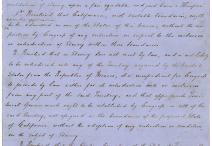 institution of Slavery, upon a fair
Resolved that California, with suitable boundaries, ought
of the States of this Union, without the im-
position by Congress of any restriction in respect to the exclusion
or introduction of Slavery within those boundaries.
Resolved that as Slavery does not exist by law, and is not likely
to be introduced into any of the territory acquired by the United
States from the Republic of Mexico, it is inexpedient for Congress
to provide by law either for its introduction into or exclusion
from any part of the said Territory; and that appropriate Terri-
torial governments ought to be established by Congress in all of the
said territory, not assigned as the boundaries of the proposed State of
California, without the adoption of any restriction or condition
on the subject of Slavery.